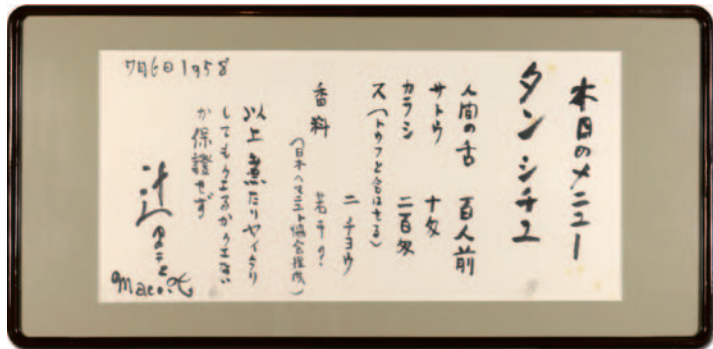 本日のメニュー
タンシチユ
人間の舌 百人前
サトウ 十匁
カラシ 二百匁
ス(トウフと合はせる)
二チヨウ
香料
(日本ヘマニスト協会推成)
以上煮たりヤイタリ
してもクエるかクエない
か保證せず
7月6日1958
辻まこと